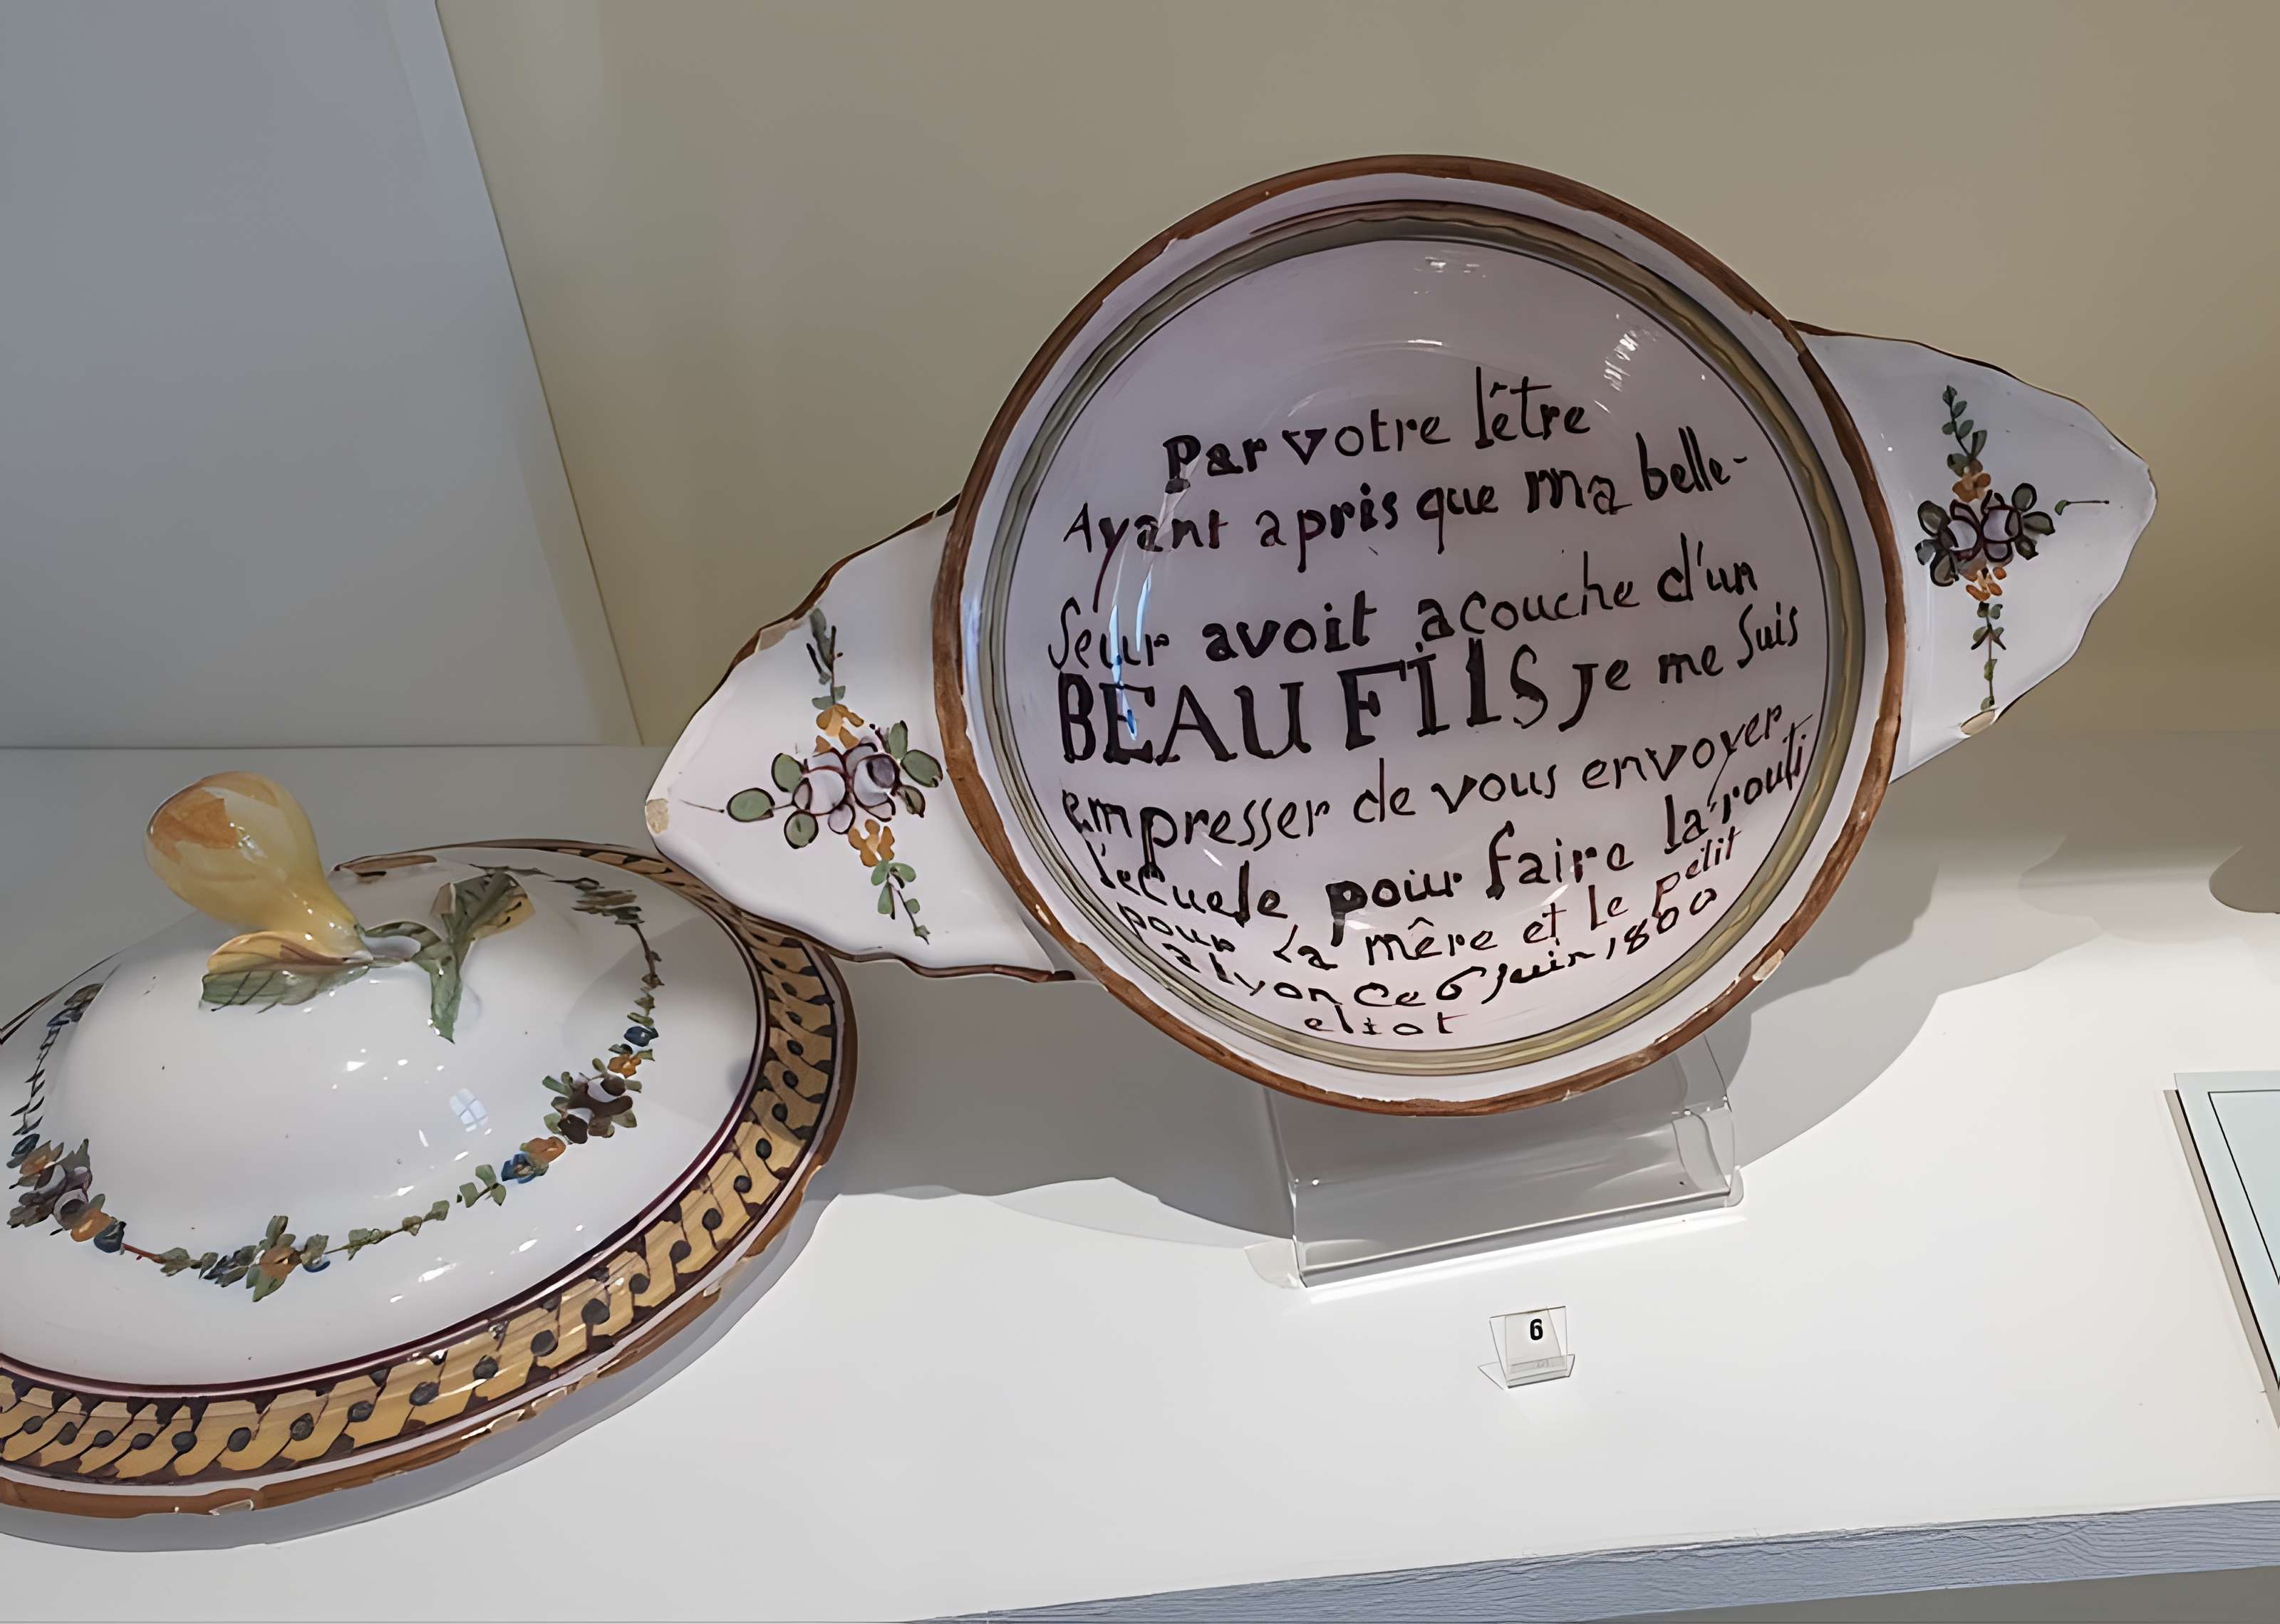 Par votre lêtre
Ayant apris que ma belle-
Seur avoit acouche d'un
BEAU FilS Je me Suis
empresser de vous envoyer
l'ecuele pour faire la routi
pour La mêre et le petit
a lyon Ce 6 Juin 1800
eliot
6